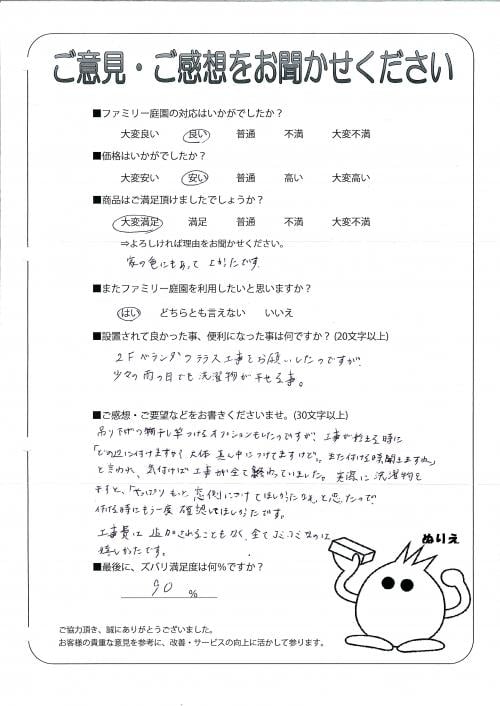 ご意見・ご感想をお聞かせください
■ファミリー庭園の対応はいかがでしたか？
大変良い　良い　普通　不満　大変不満
■価格はいかがでしたか？
大変安い　安い　普通　高い　大変高い
■商品はご満足頂けましたでしょうか？
大変満足　満足　普通　不満　大変不満
⇒よろしければ理由をお聞かせください。
家の色にもあって よかったです。
■またファミリー庭園を利用したいと思いますか？
はい　どちらとも言えない　いいえ
■設置されて良かった事、便利になった事は何ですか？(20文字以上)
2Fベランダのテラス工事をお願いしたのですが、
少々の雨の日でも洗濯物が干せる事。
■ご感想・ご要望などをお書きくださいませ。(30文字以上)
吊り下げの物干し竿つけるオプションもしたのですが、工事が始まる時に
「どの辺に付けますか？大体 真ん中につけてますけど。また付ける時聞きますね」
と言われ、気付けば工事が全て終わっていました。実際に洗濯物を
干すと、「やっぱりもっと窓側につけてほしかったなぁ」と思ったので
付ける時にもう一度確認してほしかったです。
工事費は追加されることもなく、全てコミコミなのは
嬉しかったです。
■最後に、ズバリ満足度は何％ですか？
90 ％
ぬりえ
ご協力頂き、誠にありがとうございました。
お客様の貴重な意見を参考に、改善・サービスの向上に活かして参ります。